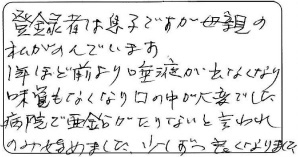 登録者は息子ですが母親の
私がのんでいます
1年ほど前より唾液が出なくなり
味覚もなくなり口の中が大変でした
病院で亜鉛がたりないと言われ
のみ始めました 少しずつ良くなりました